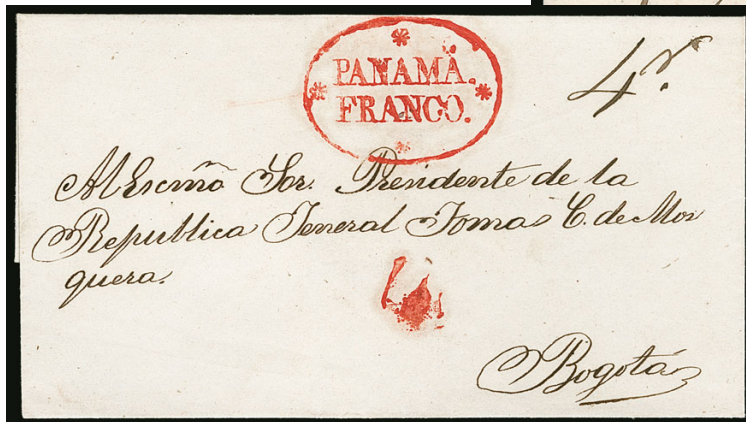 PANAMÁ.
FRANCO.
4 r.
Al Escmō Sor. Prendente de la
Republica Jeneral Tomas C. de Mos
quera.
Bogotá